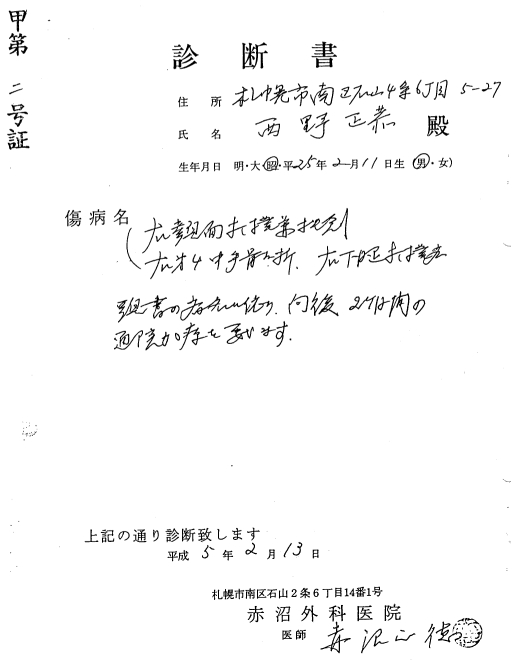 甲第二号証
診断書
住所 札幌市南区石山4条6丁目 5-27
氏名 西野正恭 殿
生年月日 明・大・昭・平 25年 2月 11日生 (男・女)
傷病名
右顔面打撲兼挫創
右第4中手骨骨折、右下腿打撲
頭書の病名に依り、向後 2ケ月間の
通院加療を要します。
上記の通り診断致します
平成 5年 2月 13日
札幌市南区石山2条6丁目14番1号
赤沼外科医院
医師 赤沼